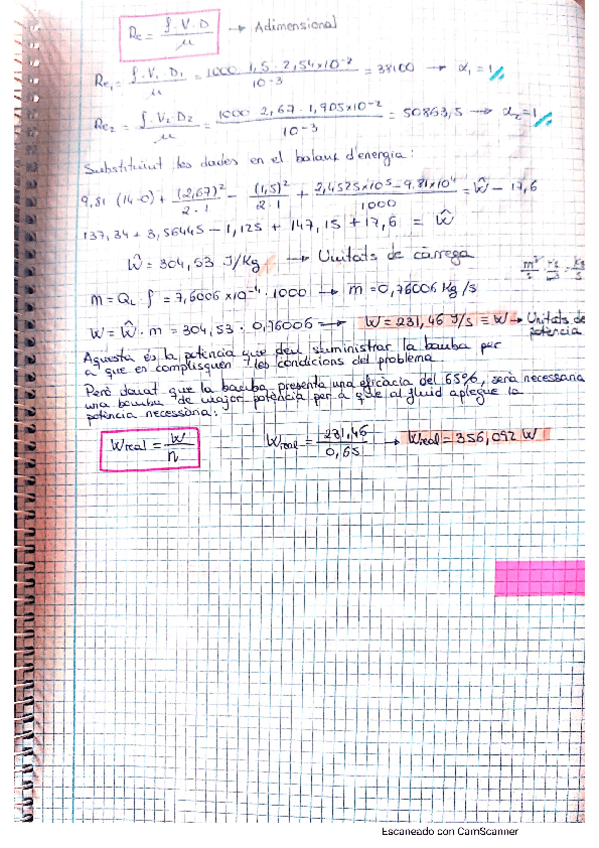 Re = ρ·V·D / μ → Adimensional
Re₁ = ρ·V₁·D₁ / μ = 1000·1,5·2,54x10⁻² / 10⁻³ = 38100 → α₁ = 1
Re₂ = ρ·V₂·D₂ / μ = 1000·2,67·1,905x10⁻² / 10⁻³ = 50863,5 → α₂ = 1
Substituint les dades en el balanç d'energia:
9,81 (14-0) + (2,67)² / 2·1 - (1,5)² / 2·1 + 2,4525x10⁵ - 9,81x10⁴ / 1000 = Ŵ - 17,6
137,34 + 3,56445 - 1,125 + 147,15 + 17,6 = Ŵ
Ŵ = 304,53 J/Kg → Unitats de càrrega
m = QL · ρ = 7,6006x10⁻⁴ · 1000 → m = 0,76006 Kg/s
W = Ŵ · m = 304,53 · 0,76006 → W = 231,46 J/s ≡ W → Unitats de
potència
Aquesta és la potència que deu suministrar la bomba per
a que es complisquen les condicions del problema.
Però donat que la bomba presenta una eficàcia del 65%, serà necessaria
una bomba de major potència per a que al fluid aplegue la
potència necessària:
Wreal = W / η Wreal = 231,46 / 0,65 → Wreal = 356,092 W
Escaneado con CamScanner